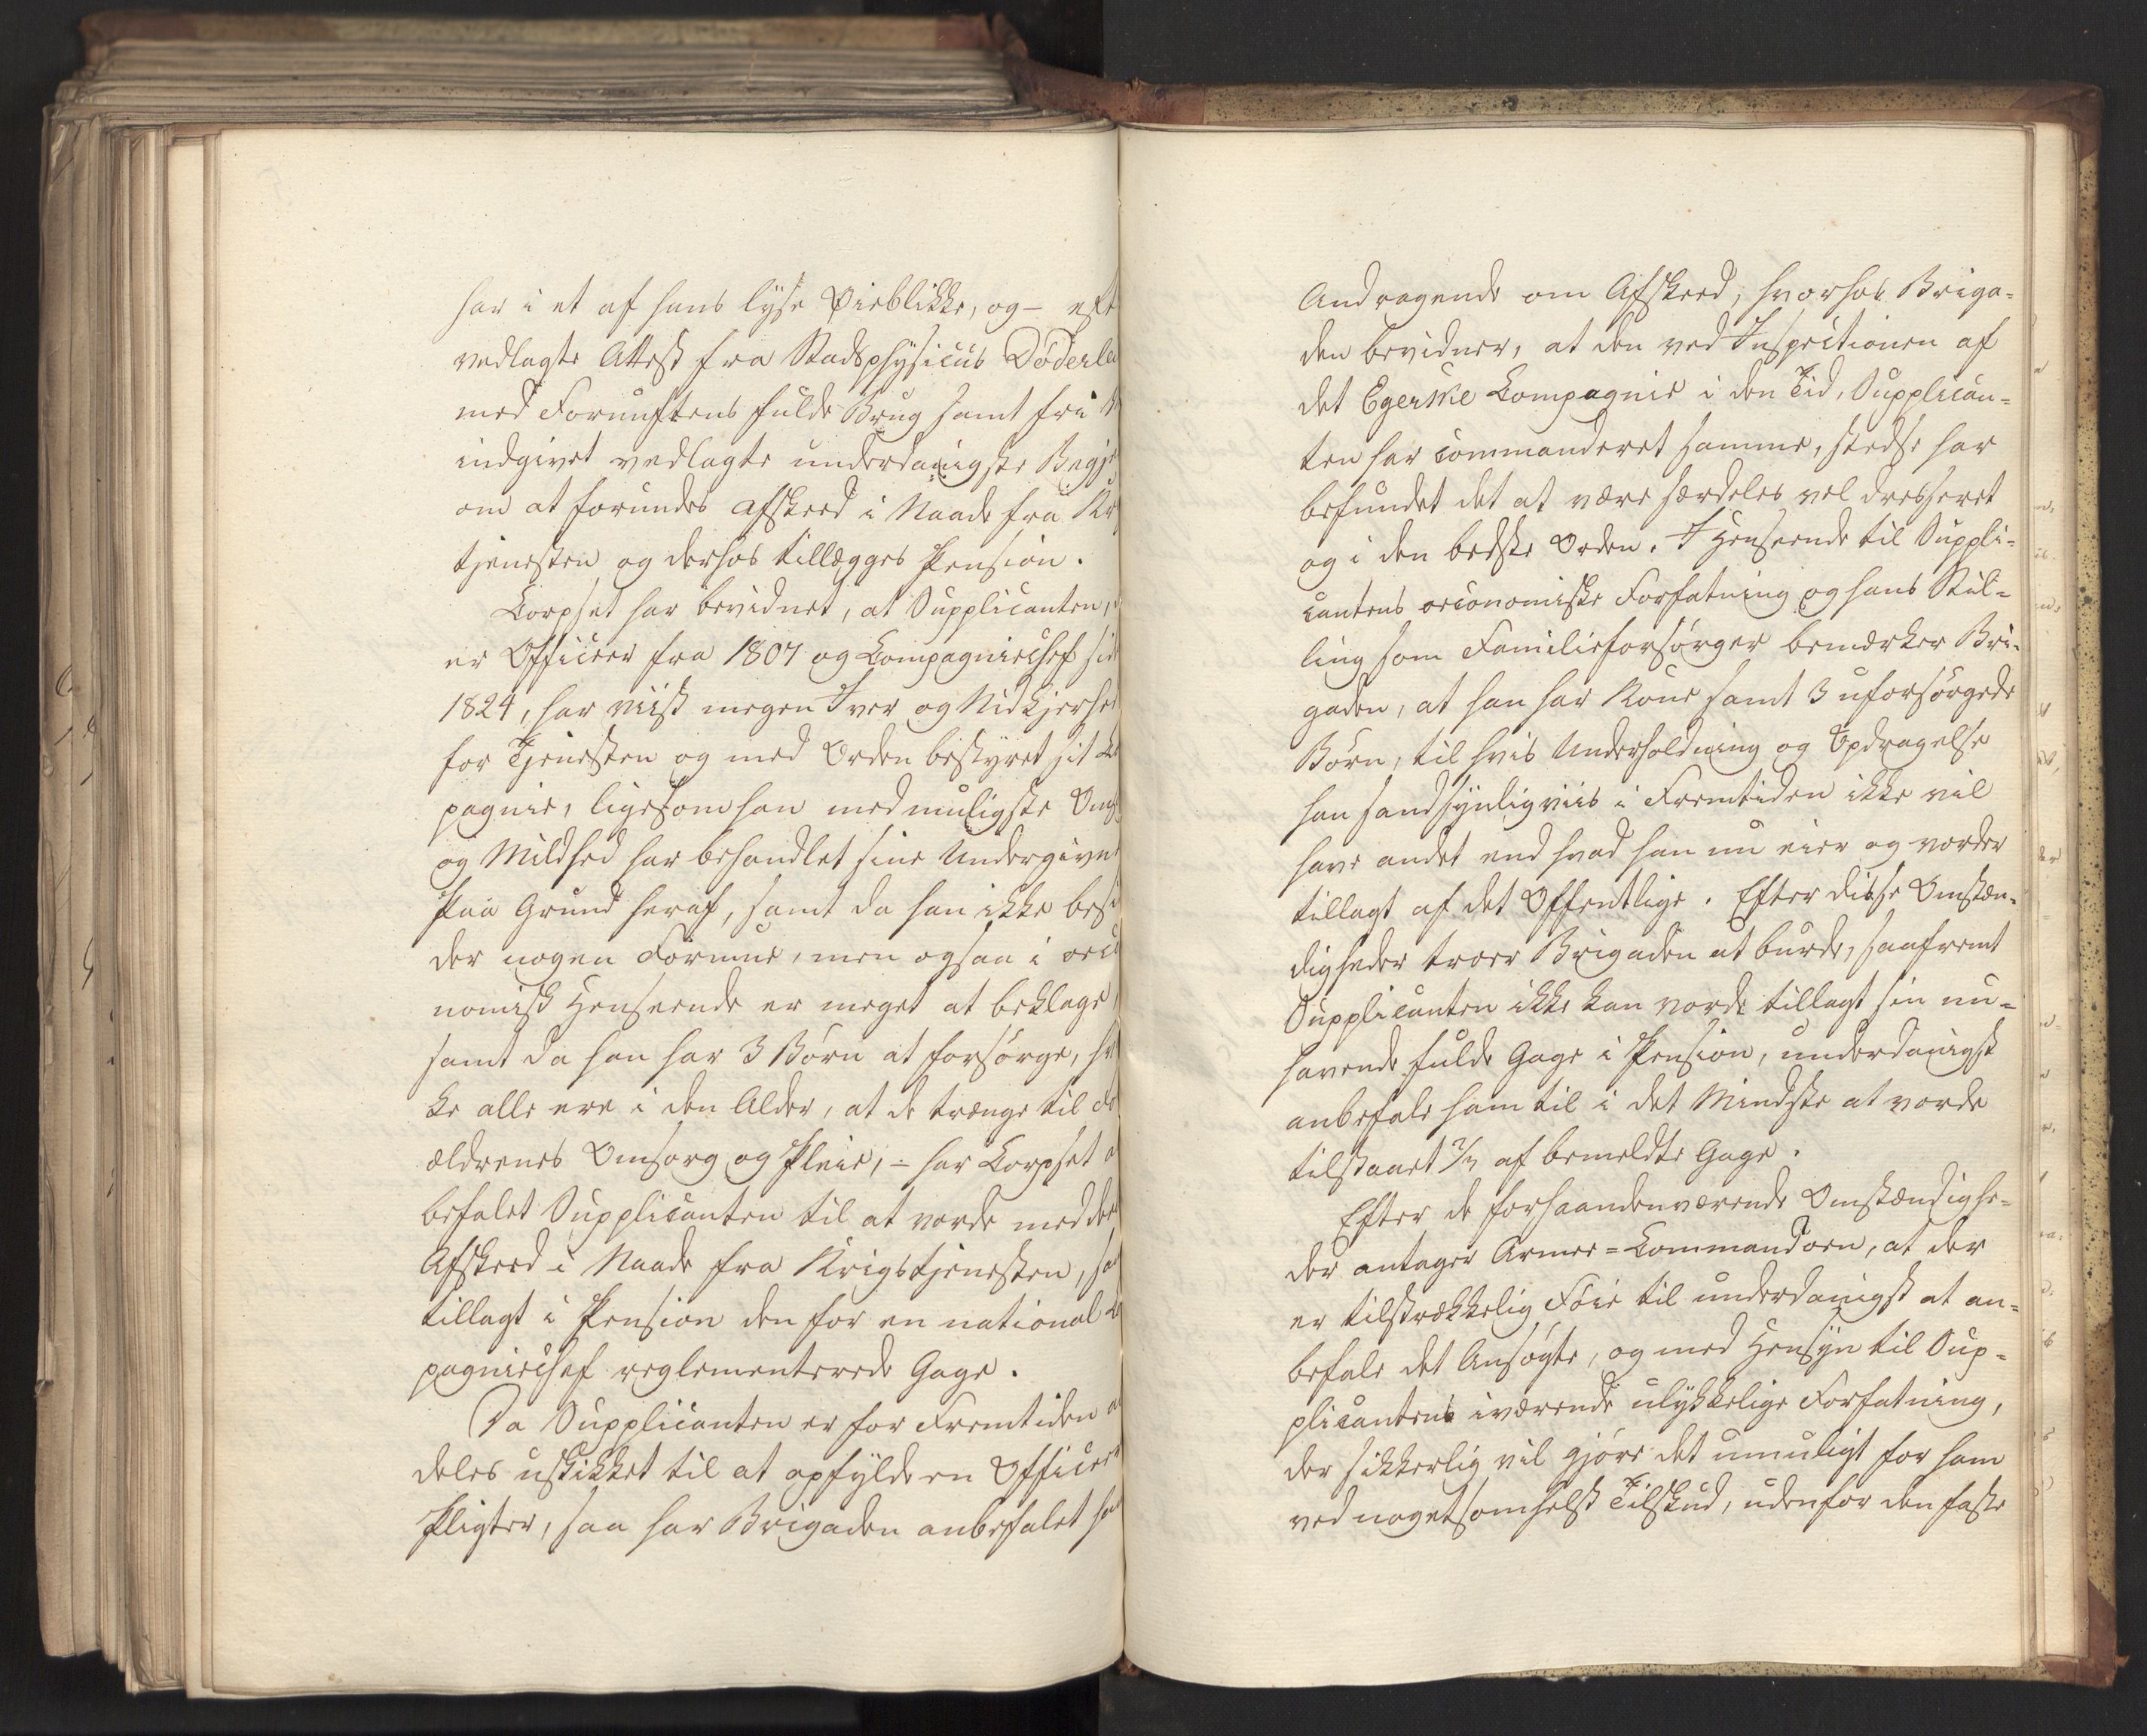 har i et af hans lyse Øieblikke, og – eft
vedlagte Attest fra Stadsphysicus Döderle
med Fornuftens fulde Brug samt fri
indgivet vedlagte underdanigste Begje
om at forundes Afskeed i Naade fra Kr
tjenesten og derhos tillægges Pension.
Corpset har bevidnet, at Supplicanten,
er Officeer fra 1807 og Compagniechef sid
1824, har viist megen Iver og Nidkjerhed
for Tjenesten og med Orden bestyret sit Co
pagnie, ligesom han med muligste Oms
og Mildhed har behandlet sine Undergivne
Paa Grund heraf, samt da han ikke besi
der nogen Formue, men ogsaa i oeco
nomisk Henseende er meget at beklage,
samt da han har 3 Børn at forsørge, hvi
ke alle ere i den Alder, at de trænge til de
ældrenes Omsorg og Pleie, – har Corpset a
befalet Supplicanten til at vorde meddee
Afskeed i Naade fra Krigstjenesten, sa
tillagt i Pension den for en national Co
pagniechef reglementerede Gage.
Da Supplicanten er for Fremtiden a
deles uskikket til at opfylde en Officeers
Pligter, saa har Brigaden anbefalet ha
Andragende om Afskeed, hvorhos Briga-
den bevidner, at den ved Inspectionen af
det Egerske Compagnie i den Tid, Supplican-
ten har commanderet samme, stedse har
befundet det at være særdeles vel dresseret
og i den bedste Orden. I Henseende til Suppli-
cantens oeconomiske Forfatning og hans Stil-
ling som Familieforsørger bemærker Bri-
gaden, at han har Kone samt 3 uforsørgede
Børn, til hvis Underholdning og Opdragelse
han sandsynligviis i Fremtiden ikke vil
have andet end hvad han nu eier og vorder
tillagt af det Offentlige. Efter disse Omstæn-
digheder troer Brigaden at burde, saafremt
Supplicanten ikke kan vorde tillagt sin nu-
havende fulde Gage i Pension, underdanigst
anbefale ham til i det Mindste at vorde
tilstaaet 2/3 af bemeldte Gage.
Efter de forhaandenværende Omstændighe-
der antager Armee-Commandoen, at der
er tilstrækkelig Føie til underdanigst at an-
befale det Ansøgte, og med Hensyn til Sup-
plicantens iværende ulykkelige Forfatning,
der sikkerlig vil gjøre det umuligt for ham
ved nogetsomhelst Tilskud, udenfor den faste